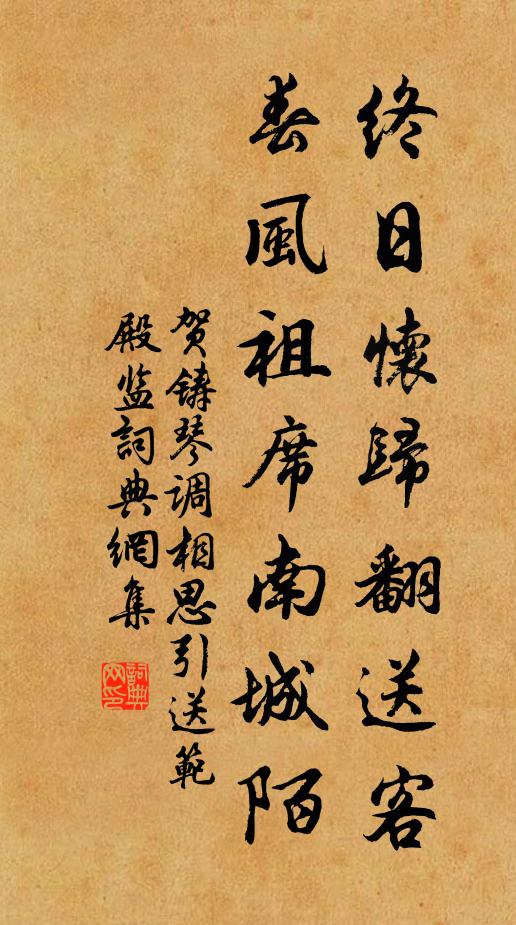 終日懷歸翻送客
春風祖席南城陌
贺鑄琴调相思引送範
殿监詞典網集
詞典网印